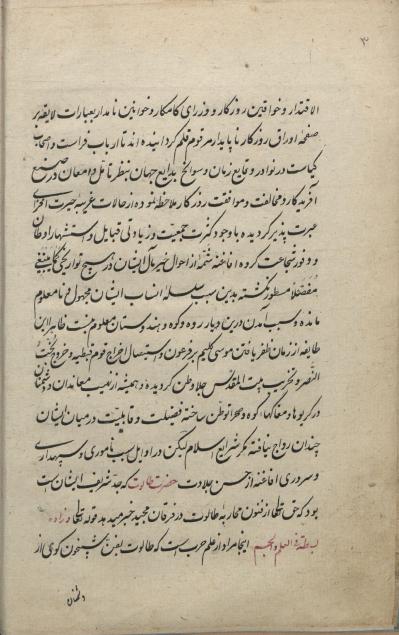 ۳
الاقتدار و خواقین روزکار و وزرای کامکار و خوانین نامدار بعبارات لایقه بر
صفحهٔ اوراق روزکار ناپایدار مرقوم قلم کردانیده اند تا ارباب فراست و اصحاب
کیاست در نوادر وقایع زمان و سوانح بدایع جهان بنظر تامل و امعان در صنع
آفریدکار و مخالفت و موافقت روزکار ملاحظه نموده از حالات غریبه حیرت افزای
عبرت پذیر کردیده با وجود کثرت جمعیت و زیادتی قبایل و اشتهار اوطان
و وفور شجاعت کروه افاغنه شمهٔ از احوال خیرمآل ایشان در هیچ تواریخی کماینبغی
مفصلا مسطور نکشته بدین سبب سلسله انساب ایشان مجهول و نامعلوم
مانده و سبب آمدن درین دیار روه و کوه و هندوستان معلوم نیست ظاهرا این
طایفه از زمان ظفر یافتن موسی کلیم بر فرعون و استیصال اخراج قوم قبطیه و خروج بخت
النصر و تخریب بیت المقدس جلا وطن کردیده و همیشه از نهیب معاندان و دشمنان
در کریوها و مغاکهای کوه و صحرا توطن ساخته فضیلت و قابلیت در میان ایشان
چندان رواج نیافته مکر شرایع اسلام لیکن در اوایل سپاموری و سپهداری
و سرداری افاغنه از حسن جلادت حضرت طالوت که جد شریف ایشان است
بود که حق تعالی از فنون محاربهٔ طالوت در فرقان مجید خبر میدهد قوله تعالی وزاده
بسطة فی العلم والجسم اینجا مراد از علم حرب است که طالوت بفن شبیخون کوی از